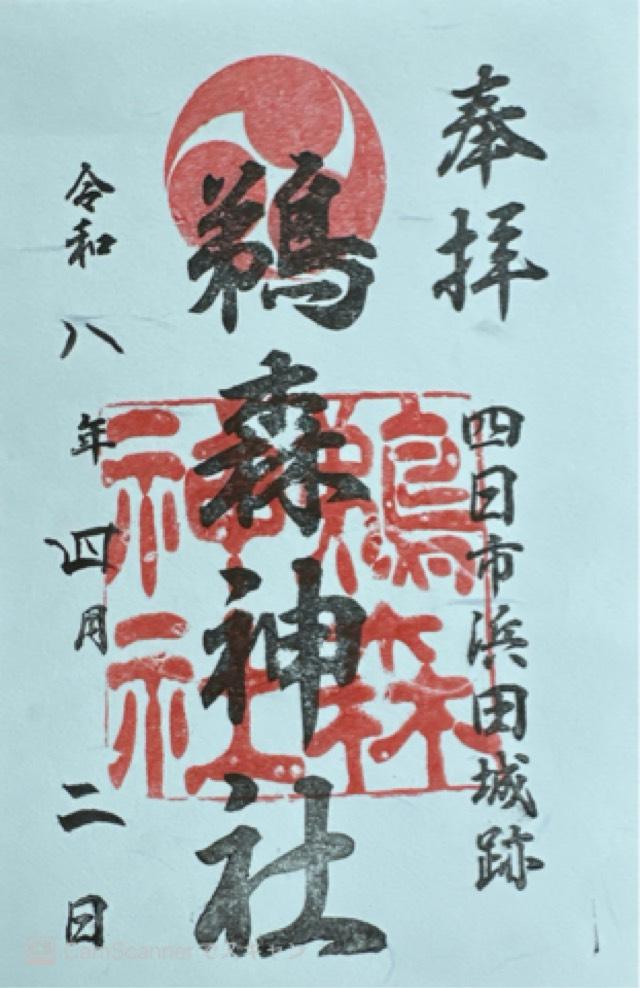 奉拝
四日市浜田城跡
鵜森神社
鵜森神社
令和八年四月二日
CamScanner でスキャン